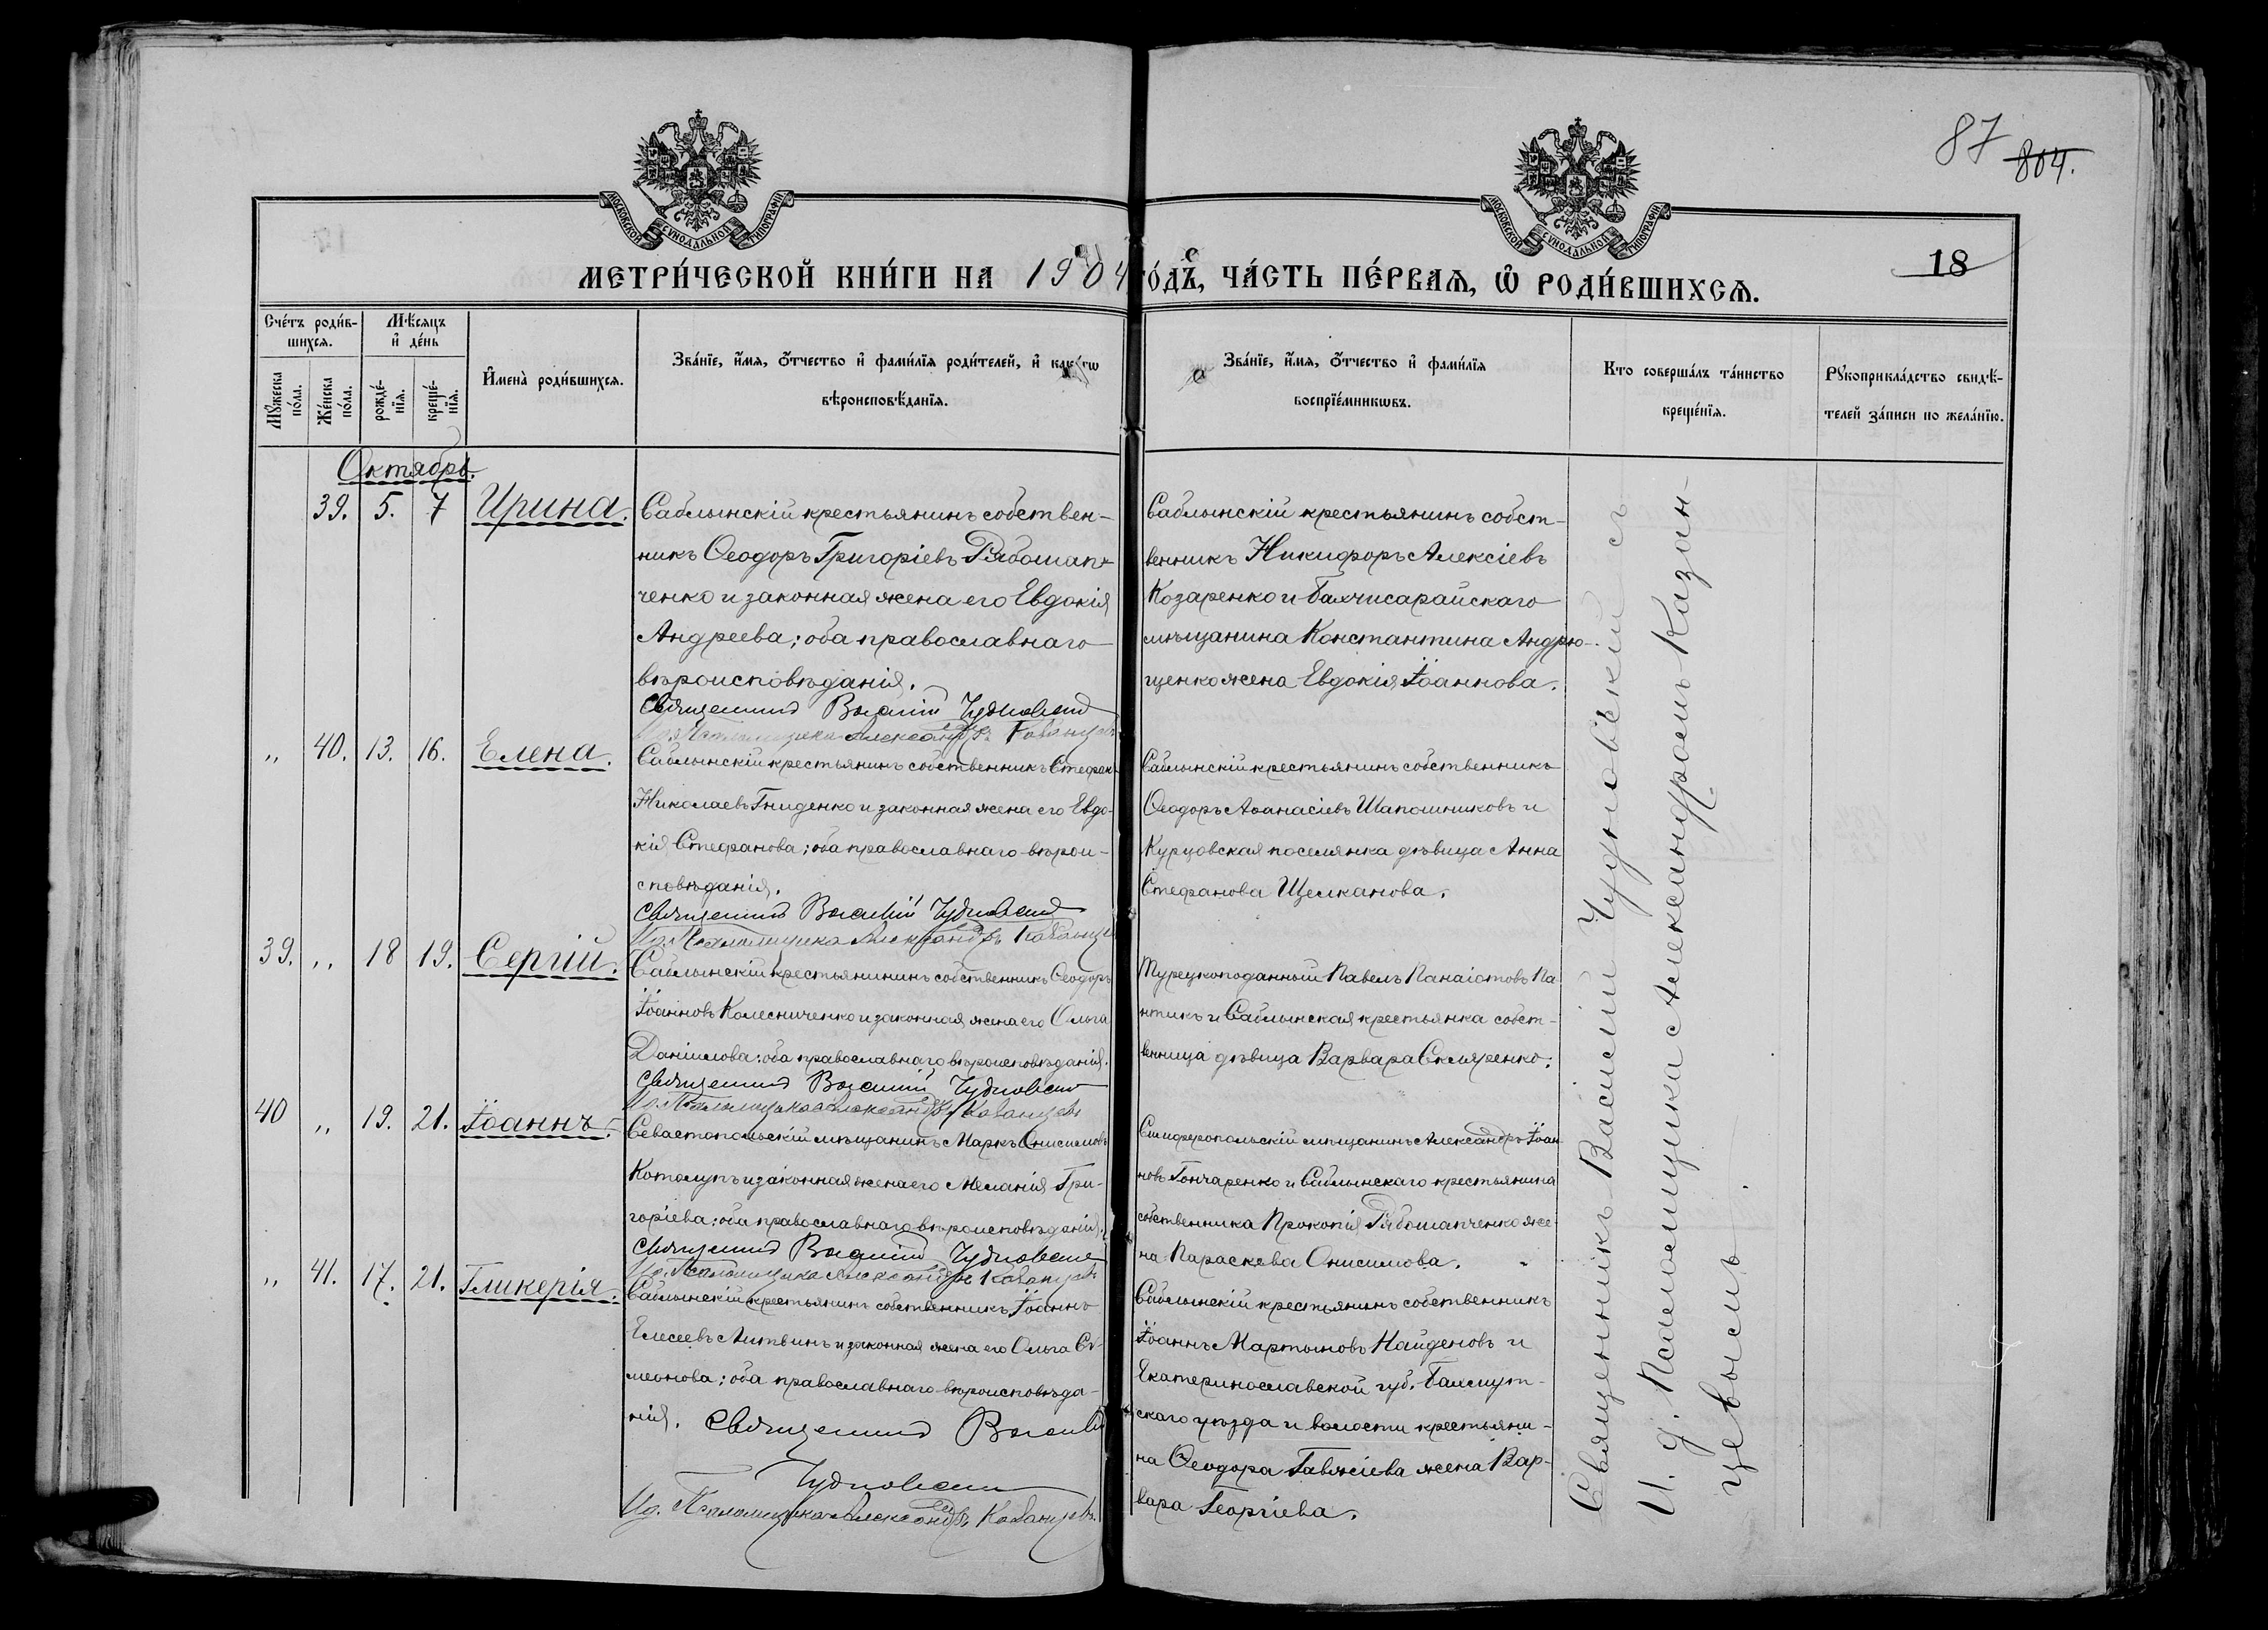 87 804.
МОСКОВСКОЙ СѴНОДАЛЬНОЙ ТИПОГРАФІИ
МОСКОВСКОЙ СѴНОДАЛЬНОЙ ТИПОГРАФІИ
18
МЕТРИ́ЧЕСКОЙ КНИ́ГИ НА 1904 го́дъ, ЧА́СТЬ ПЕ́РВАѦ, Ѡ РОДИ́ВШИХСѦ.
Сче́тъ роди́в-
шихсѧ.
Мꙋ́жеска по́ла.
Же́нска по́ла.
Мѣ́сѧцъ
и҆ де́нь
рожде́-
нїѧ.
креще́-
нїѧ.
И҆мена̀ роди́вшихсѧ.
Зва́нїе, и҆́мѧ, ѻ҆́тчество и҆ фами́лїѧ роди́телей, и҆ како́гѡ
вѣроисповѣ́данїѧ.
Зва́нїе, и҆́мѧ, ѻ҆́тчество и҆ фами́лїѧ
воспрїе́мникѡвъ.
Кто соверша́лъ та́инство
креще́нїѧ.
Рꙋкоприкла́дство свидѣ́-
телей за́писи по жела́нїю.
Октябрь.
39. 5. 7 Ирина.
Саблынскій крестьянинъ собствен-
никъ Ѳеодоръ Григоріевъ Рябошап-
ченко и законная жена его Евдокія
Андреева; оба православнаго
вѣроисповѣданія.
Священникъ Василій Чудновскій
И.д. Псаломщика Александръ Казанцевъ
Саблынскій крестьянинъ собст-
венникъ Никифоръ Алексіевъ
Козаренко и Бахчисарайскаго
мѣщанина Константина Андрю-
щенко жена Евдокія Іоаннова.
„ 40. 13. 16. Елена.
Саблынскій крестьянинъ собственникъ Стефанъ
Николаевъ Гниденко и законная жена его Евдо-
кія Стефанова; оба православнаго вѣрои-
сповѣданія.
Священникъ Василій Чудновскій
И.д. Псаломщика Александръ Казанцевъ
Саблынскій крестьянинъ собственникъ
Ѳеодоръ Аѳанасіевъ Шапошниковъ и
Курцовская поселянка дѣвица Анна
Стефанова Щелканова.
39. „ 18 19. Сергій.
Саблынскій крестьянининъ собственникъ Ѳеодоръ
Іоанновъ Колесниченко и законная жена его Ольга
Даніилова; оба православнаго вѣроисповѣданія.
Священникъ Василій Чудновскій
И.д. Псаломщика Александръ Казанцевъ
Турецкоподанный Павелъ Панаіотовъ Па
нтикъ и Саблынская крестьянка собст-
венница дѣвица Варвара Скляренко.
40 „ 19. 21. Іоаннъ.
Севастопольскій мѣщанинъ Маркъ Онисимовъ
Котолупъ и законная жена его Меланія Гри-
горіева; оба православнаго вѣроисповѣданія.
Священникъ Василій Чудновскій
И.д. Псаломщика Александръ Казанцевъ
Симферопольскій мѣщанинъ Александръ Іоан
новъ Гончаренко и Саблынскаго крестьянина
собственника Прокопія Рябошапченко же-
на Параскева Онисимова.
„ 41. 17. 21. Гликерія.
Саблынскій крестьянинъ собственникъ Іоаннъ
Елесеевъ Литвинъ и законная жена его Ольга Си-
меонова; оба православнаго вѣроисповѣда-
нія. Священникъ Василій
Чудновскій
И.д. Псаломщика Александръ Казанцевъ.
Саблынскій крестьянинъ собственникъ
Іоаннъ Мартыновъ Найденовъ и
Екатеринославской губ. Бахмут-
скаго уѣзда и волости крестьяни-
на Ѳеодора жена Вар-
вара Георгіева.
Священникъ Василій Чудновскій съ
И. д. Псаломщика Александромъ Казан-
цевымъ.